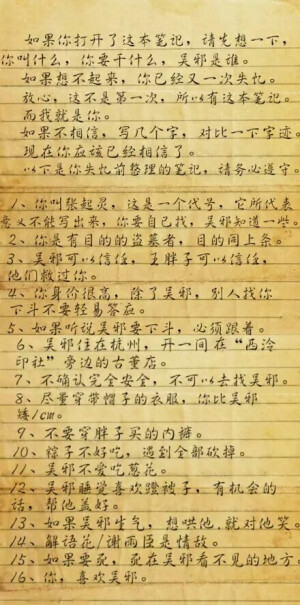 如果你打开了这本笔记，请先想一下，
你叫什么，你要干什么，吴邪是谁。
如果想不起来，你已经又一次失忆。
放心，这不是第一次，所以有这本笔记。
而我就是你。
如果不相信，写几个字，对比一下字迹。
现在你应该已经相信了。
以下是你失忆前整理的笔记，请务必遵守。
1、你叫张起灵，这是一个代号，它所代表
意义不能写出来，你要自己找，吴邪知道一些。
2、你是有目的的盗墓者，目的同上条。
3、吴邪可以信任，王胖子可以信任，
他们救过你。
4、你身份很高，除了吴邪，别人找你
下斗不要轻易答应。
5、如果听说吴邪要下斗，必须跟着。
6、吴邪住在杭州，开一间在“西泠
印社”旁边的古董店。
7、不确认完全安全，不可以去找吴邪。
8、尽量穿带帽子的衣服，你比吴邪
矮1cm。
9、不要穿胖子买的内裤。
10、粽子不好吃，遇到全部砍掉。
11、吴邪不爱吃葱花。
12、吴邪睡觉喜欢蹬被子，有机会的
话，帮他盖好。
13、如果吴邪生气，想哄他，就对他笑。
14、解语花/谢雨臣是情敌。
15、如果要死，死在吴邪看不见的地方。
16、你，喜欢吴邪。